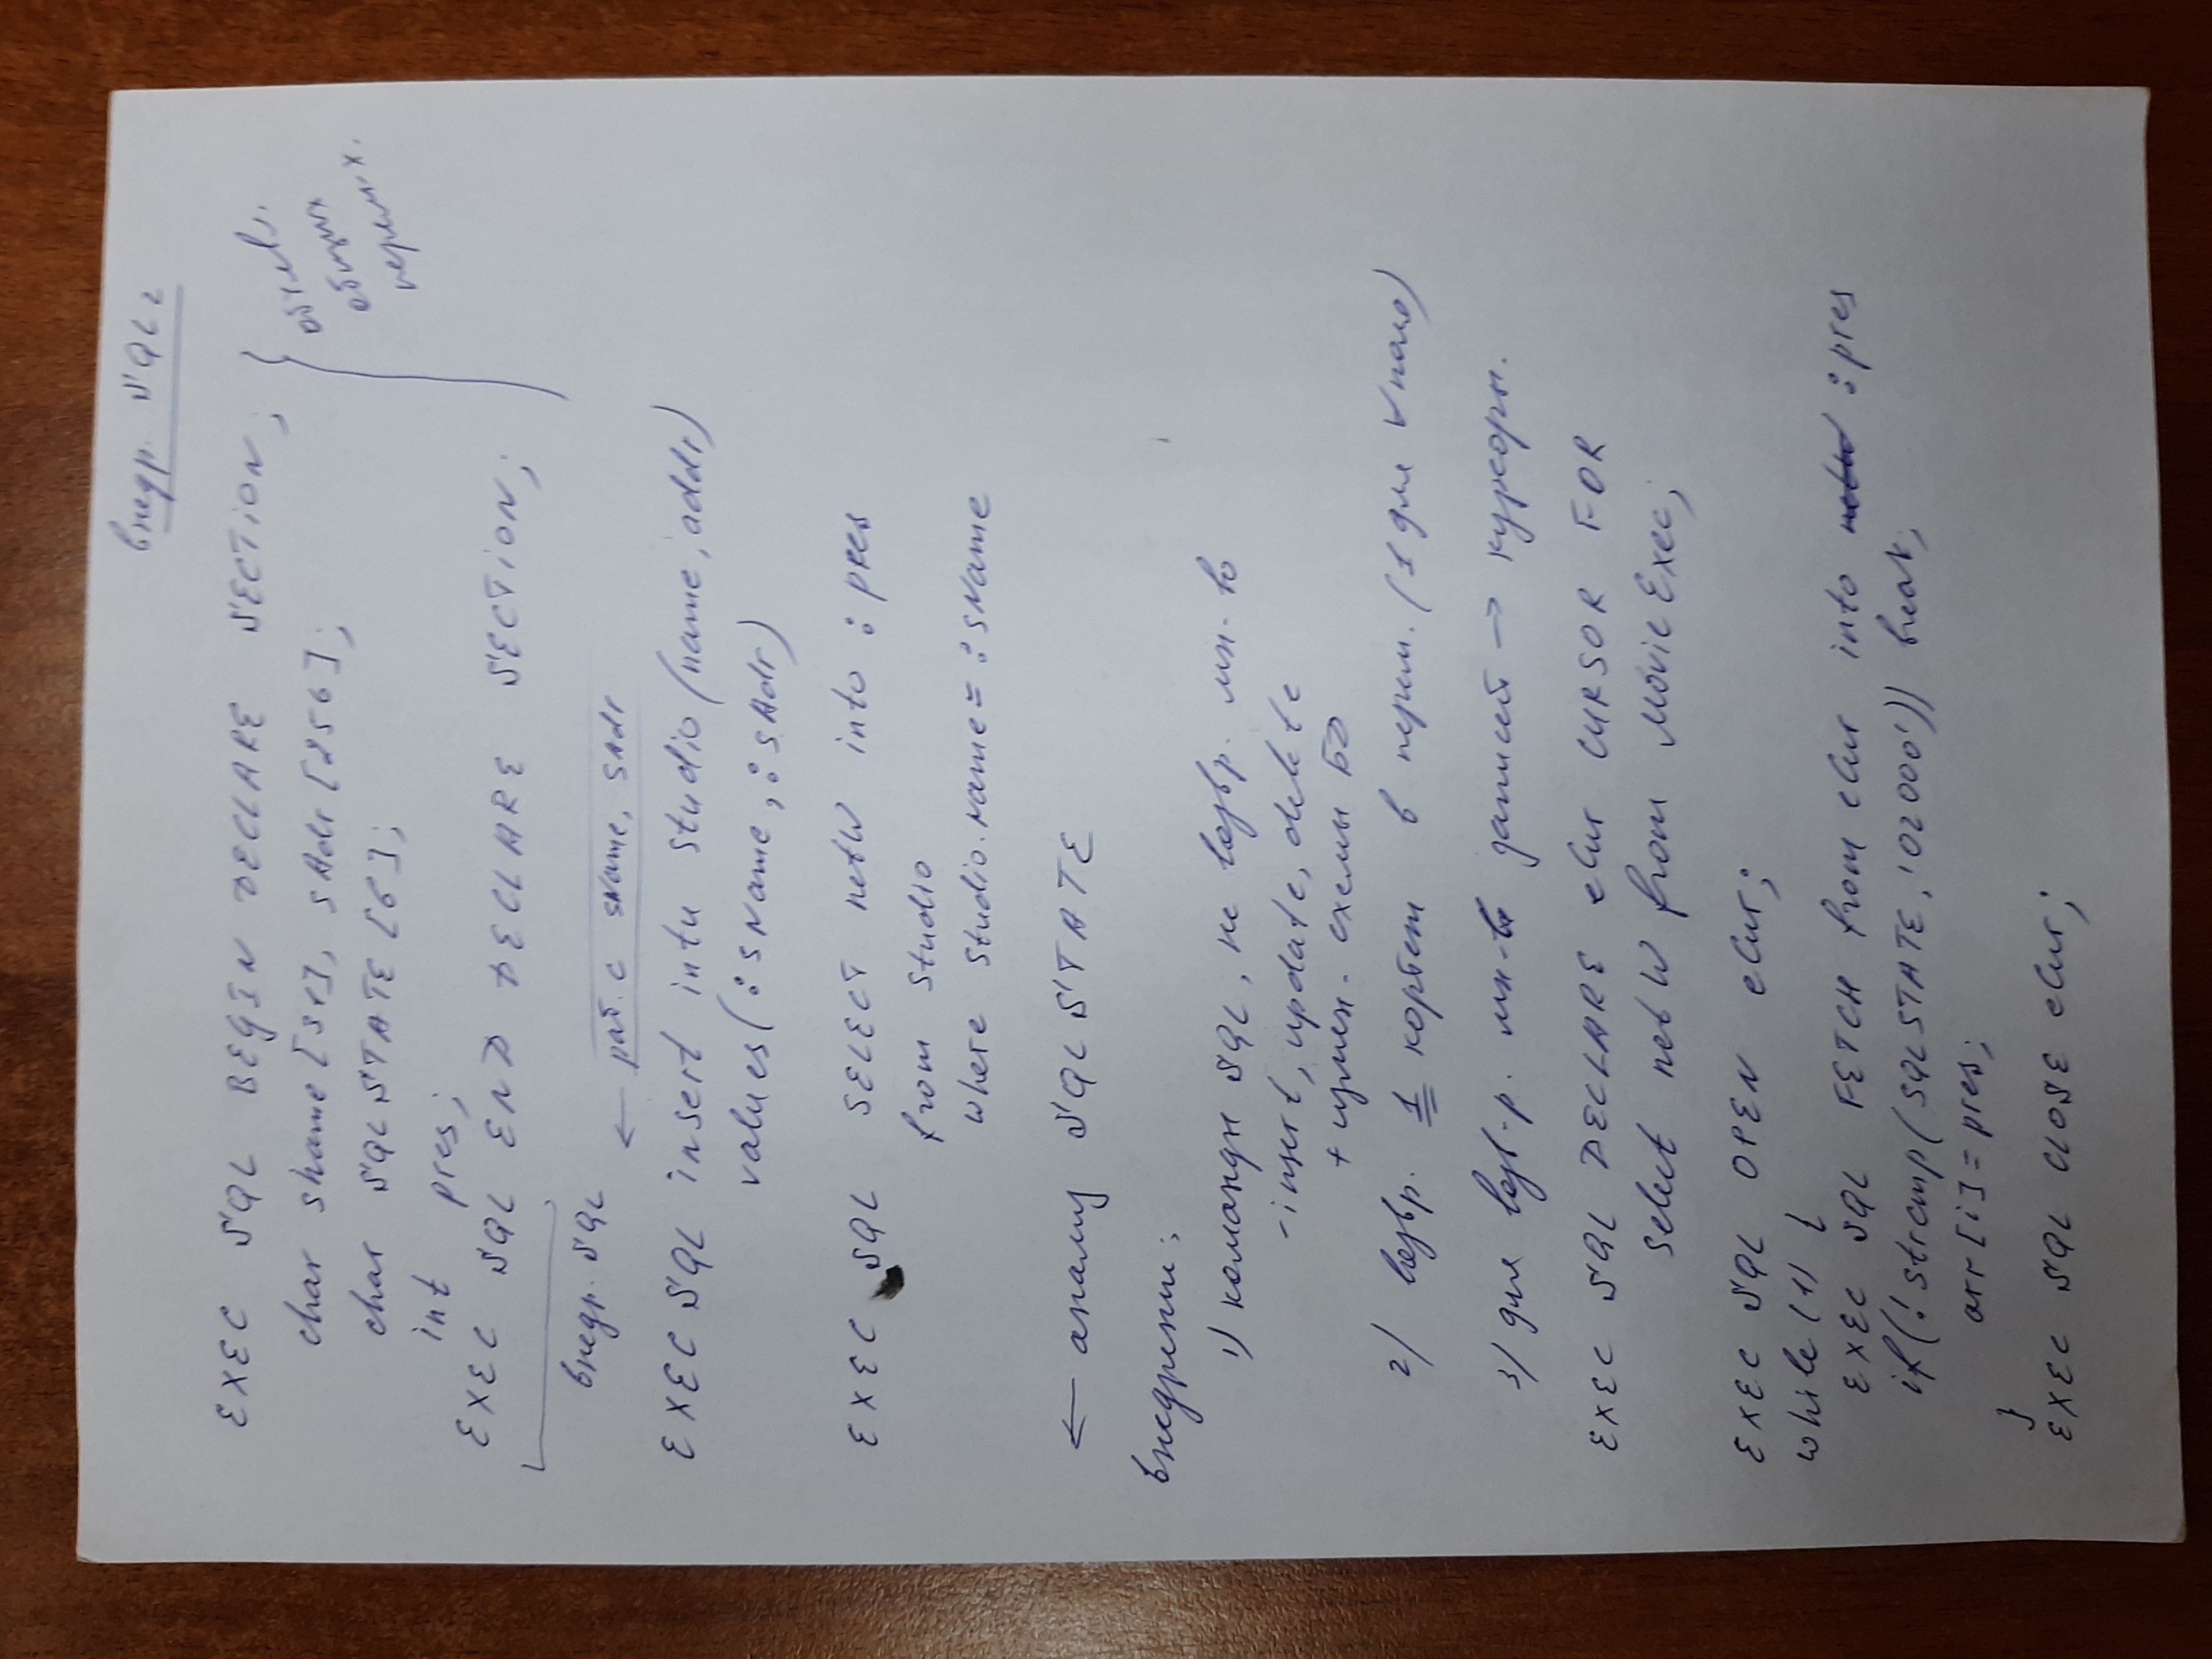 внедр. SQL 2
EXEC SQL BEGIN DECLARE SECTION;
char sname [31], sAdr [256];
char SQLSTATE [6];
int pres;
EXEC SQL END DECLARE SECTION;
объявл.
общих
перем-х.
внедр. SQL
← раб. с sName, sAdr
EXEC SQL insert into Studio (name, addr)
values (:sName, :sAdr)
EXEC SQL SELECT netW into :pres
from Studio
where Studio.Name = :sName
← анализ SQLSTATE
Внедрение:
1) команды SQL, не возвр. мн-во
- insert, update, delete
+ измен. схемы БД
2) возвр. 1 кортеж в перем. (1 для ∀ поля)
3) для возв-р. мн-в записей → курсоры.
EXEC SQL DECLARE eCur CURSOR FOR
select netW from MovieExec;
EXEC SQL OPEN eCur;
while (1) {
EXEC SQL FETCH from eCur into netW :pres
if (! strcmp (SQLSTATE, '02000')) break;
arr [i] = pres;
}
EXEC SQL CLOSE eCur;